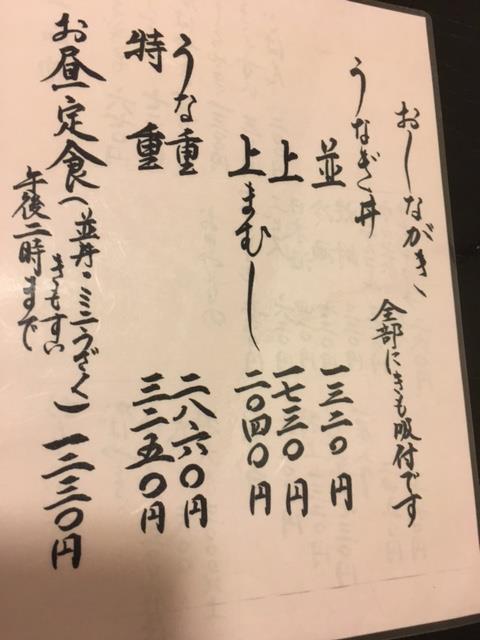 おしながき
全部にきも吸付です
うなぎ丼
並 一三二〇円
上 一七三〇円
上まむし 二〇四〇円
うな重 二八六〇円
特重 三二五〇円
お昼定食（並丼・ミニうざく きもすい） 一二三〇円
午後二時まで